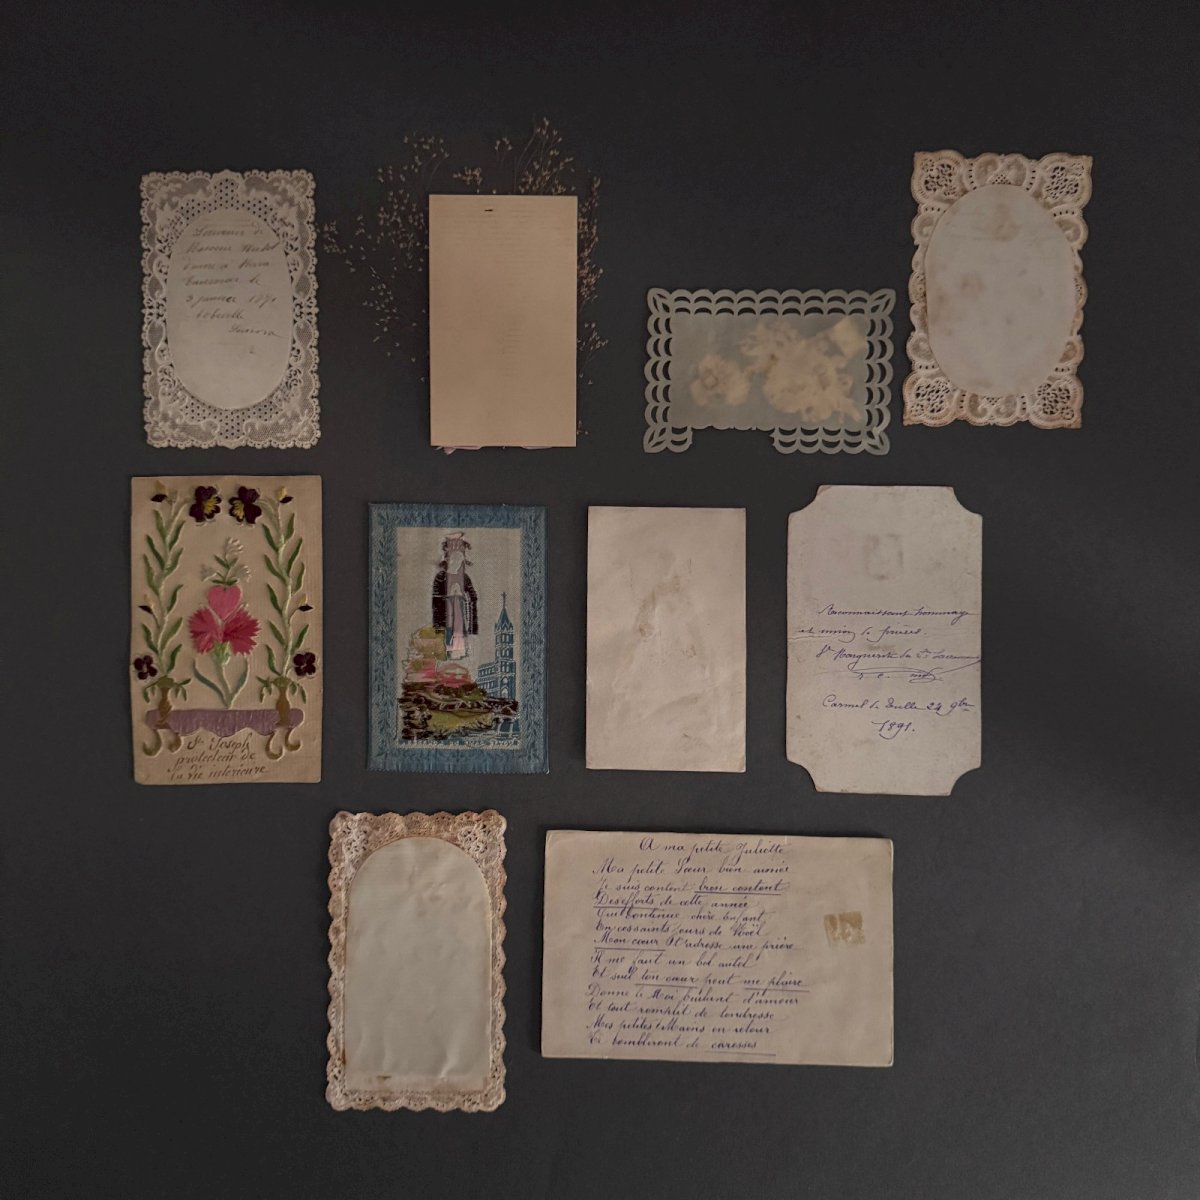 Souvenir de
donné à
le
3 janvier 189
St Joseph
protecteur de
la vie intérieure
Reconnaissant hommage
et union de prières.
Sr Marguerite du
Carmel de Tulle 24 9bre
1891.
A ma petite Juliette
Ma petite Sœur bien aimée
Je suis content bien content
Des efforts de cette année
Qu'Il continue chère Enfant
En ces saints jours de Noël
Mon cœur t'adresse une prière
Il me faut un bel autel
Et seul ton cœur peut me plaire
Donne le Moi brûlant d'amour
Et tout remplit de tendresse
Mes petites Mains en retour
Te combleront de caresses